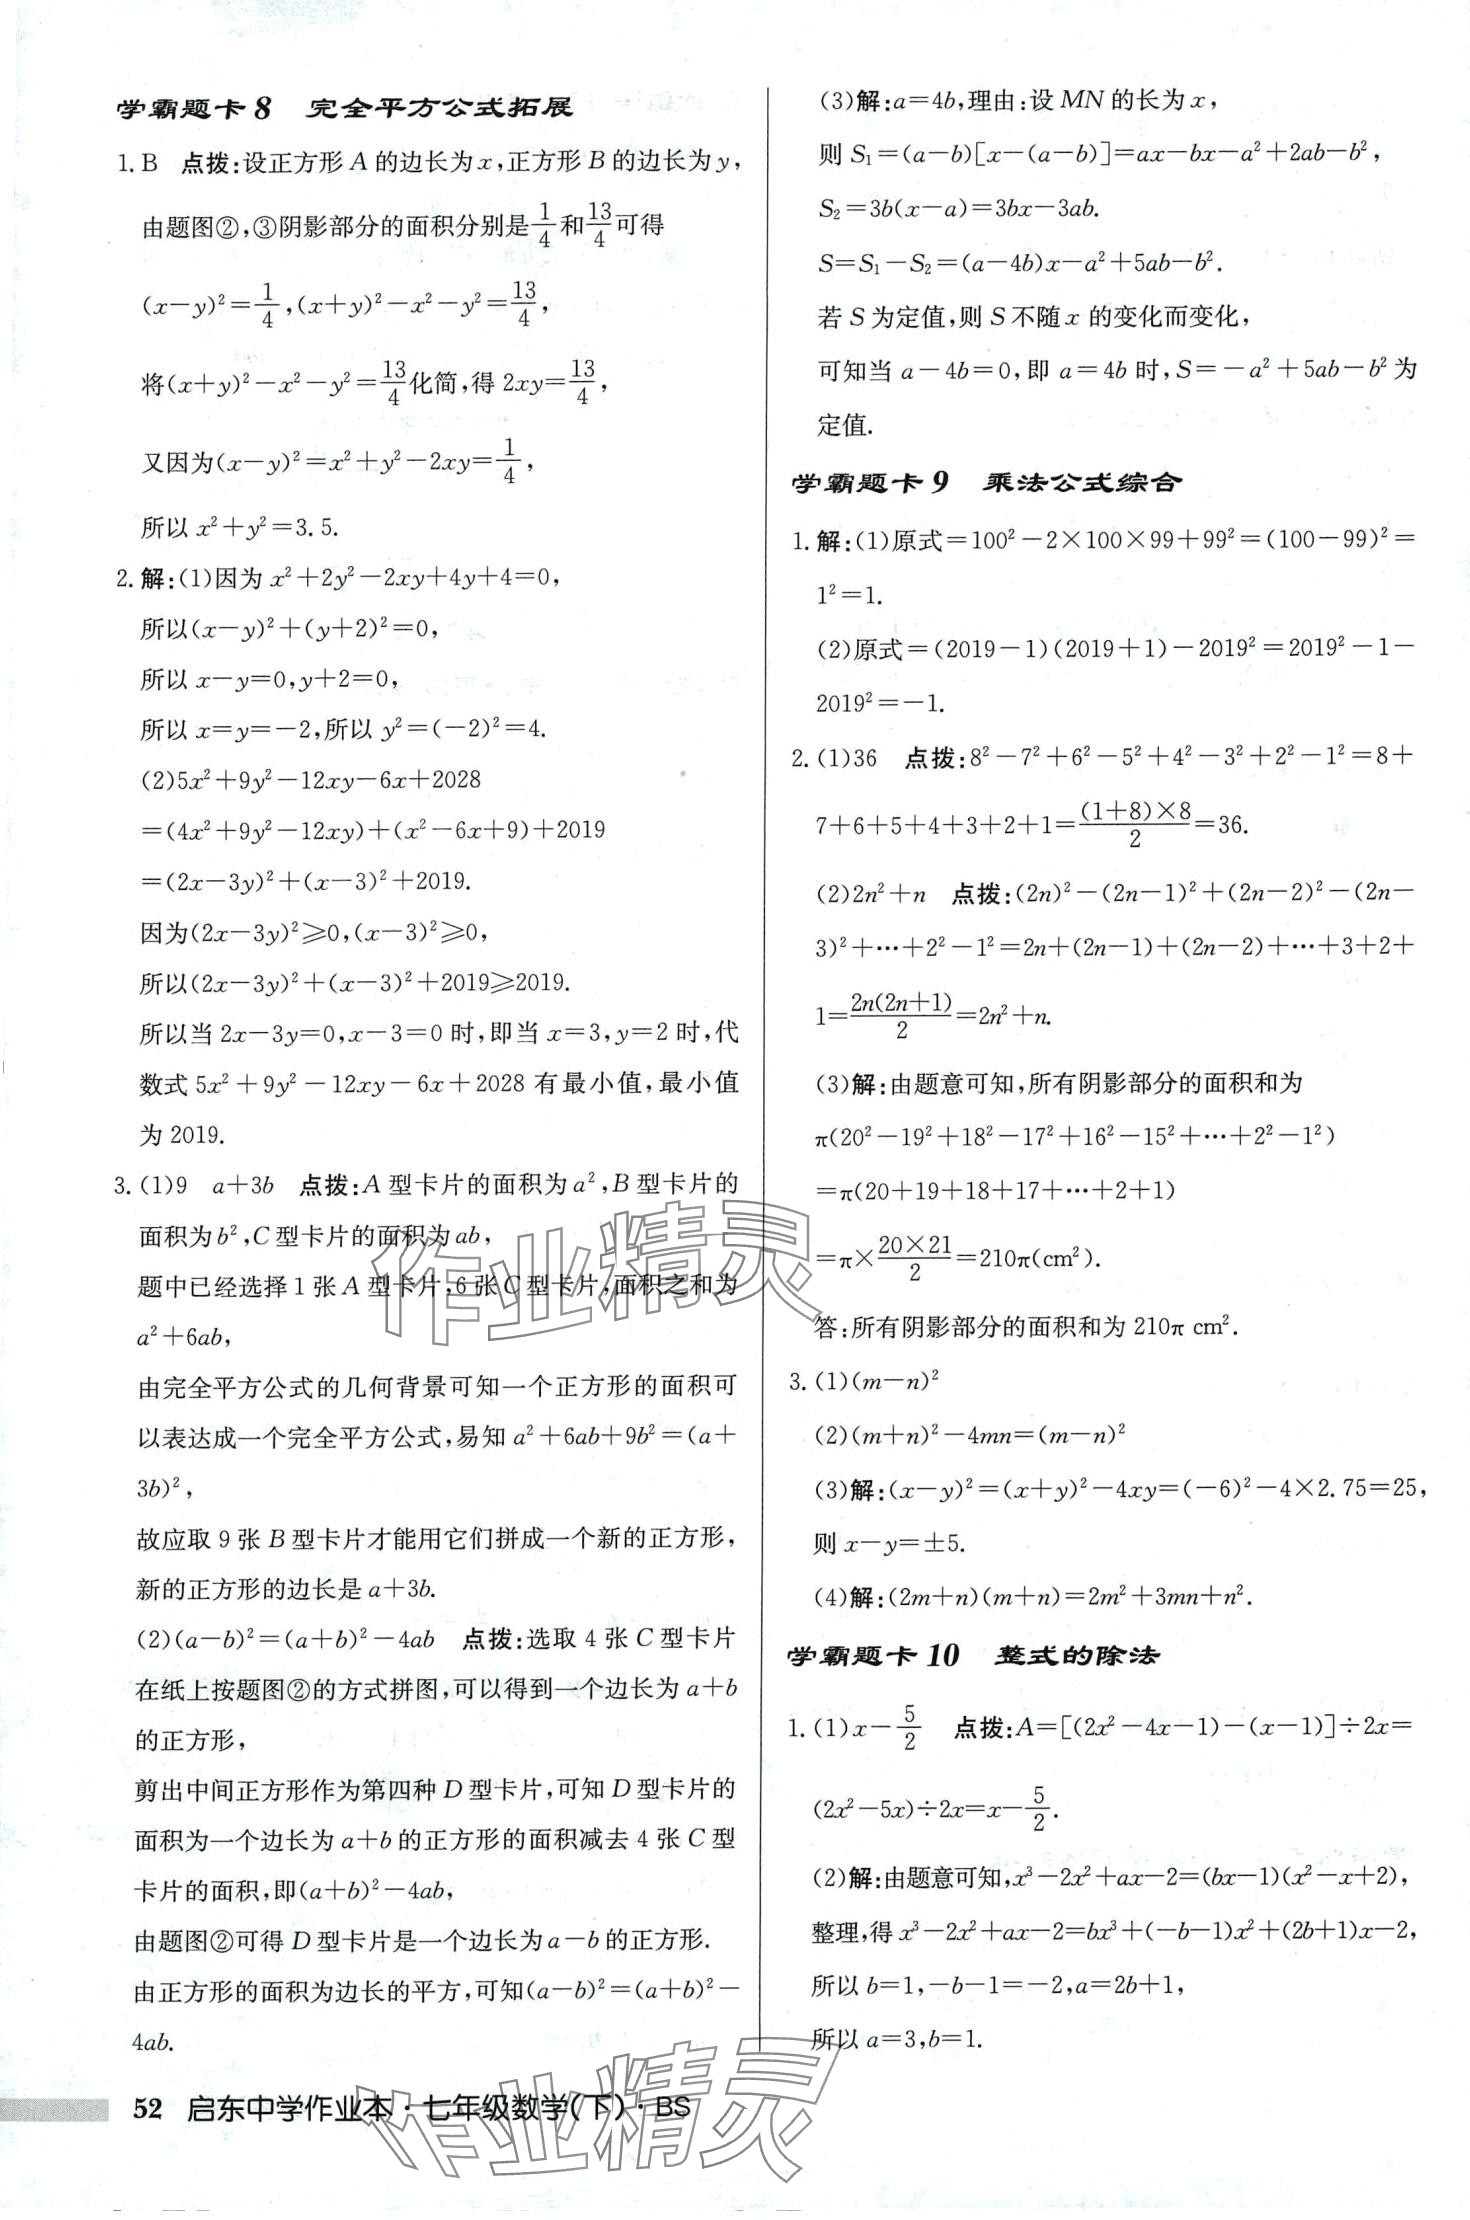 学霸题卡8 完全平方公式拓展
1.B 点拨:设正方形A的边长为x,正方形B的边长为y,
由题图②,③阴影部分的面积分别是1/4和13/4可得
(x-y)²=1/4,(x+y)²-x²-y²=13/4,
将(x+y)²-x²-y²=13/4化简,得2xy=13/4,
又因为(x-y)²=x²+y²-2xy=1/4,
所以x²+y²=3.5.
2.解:(1)因为x²+2y²-2xy+4y+4=0,
所以(x-y)²+(y+2)²=0,
所以x-y=0,y+2=0,
所以x=y=-2,所以y²=(-2)²=4.
(2)5x²+9y²-12xy-6x+2028
=(4x²+9y²-12xy)+(x²-6x+9)+2019
=(2x-3y)²+(x-3)²+2019.
因为(2x-3y)²≥0,(x-3)²≥0,
所以(2x-3y)²+(x-3)²+2019≥2019.
所以当2x-3y=0,x-3=0时,即当x=3,y=2时,代
数式5x²+9y²-12xy-6x+2028有最小值,最小值
为2019.
3.(1)9 a+3b 点拨:A型卡片的面积为a²,B型卡片的
面积为b²,C型卡片的面积为ab,
题中已经选择1张A型卡片,6张C型卡片,面积之和为
a²+6ab,
由完全平方公式的几何背景可知一个正方形的面积可
以表达成一个完全平方公式,易知a²+6ab+9b²=(a+
3b)²,
故应取9张B型卡片才能用它们拼成一个新的正方形,
新的正方形的边长是a+3b.
(2)(a-b)²=(a+b)²-4ab 点拨:选取4张C型卡片
在纸上按题图②的方式拼图,可以得到一个边长为a+b
的正方形,
剪出中间正方形作为第四种D型卡片,可知D型卡片的
面积为一个边长为a+b的正方形的面积减去4张C型
卡片的面积,即(a+b)²-4ab,
由题图②可得D型卡片是一个边长为a-b的正方形.
由正方形的面积为边长的平方,可知(a-b)²=(a+b)²-
4ab.
(3)解:a=4b,理由:设MN的长为x,
则S₁=(a-b)[x-(a-b)]=ax-bx-a²+2ab-b²,
S₂=3b(x-a)=3bx-3ab.
S=S₁-S₂=(a-4b)x-a²+5ab-b².
若S为定值,则S不随x的变化而变化,
可知当a-4b=0,即a=4b时,S=-a²+5ab-b²为
定值.
学霸题卡9 乘法公式综合
1.解:(1)原式=100²-2×100×99+99²=(100-99)²=
1²=1.
(2)原式=(2019-1)(2019+1)-2019²=2019²-1-
2019²=-1.
2.(1)36 点拨:8²-7²+6²-5²+4²-3²+2²-1²=8+
7+6+5+4+3+2+1=(1+8)×8/2=36.
(2)2n²+n 点拨:(2n)²-(2n-1)²+(2n-2)²-(2n-
3)²+…+2²-1²=2n+(2n-1)+(2n-2)+…+3+2+
1=2n(2n+1)/2=2n²+n.
(3)解:由题意可知,所有阴影部分的面积和为
π(20²-19²+18²-17²+16²-15²+…+2²-1²)
=π(20+19+18+17+…+2+1)
=π×20×21/2=210π(cm²).
答:所有阴影部分的面积和为210π cm².
3.(1)(m-n)²
(2)(m+n)²-4mn=(m-n)²
(3)解:(x-y)²=(x+y)²-4xy=(-6)²-4×2.75=25,
则x-y=±5.
(4)解:(2m+n)(m+n)=2m²+3mn+n².
学霸题卡10 整式的除法
1.(1)x-5/2 点拨:A=[(2x²-4x-1)-(x-1)]÷2x=
(2x²-5x)÷2x=x-5/2.
(2)解:由题意可知,x³-2x²+ax-2=(bx-1)(x²-x+2),
整理,得x³-2x²+ax-2=bx³+(-b-1)x²+(2b+1)x-2,
所以b=1,-b-1=-2,a=2b+1,
所以a=3,b=1.
作业精灵
52 启东中学作业本·七年级数学(下)·BS
作业精灵